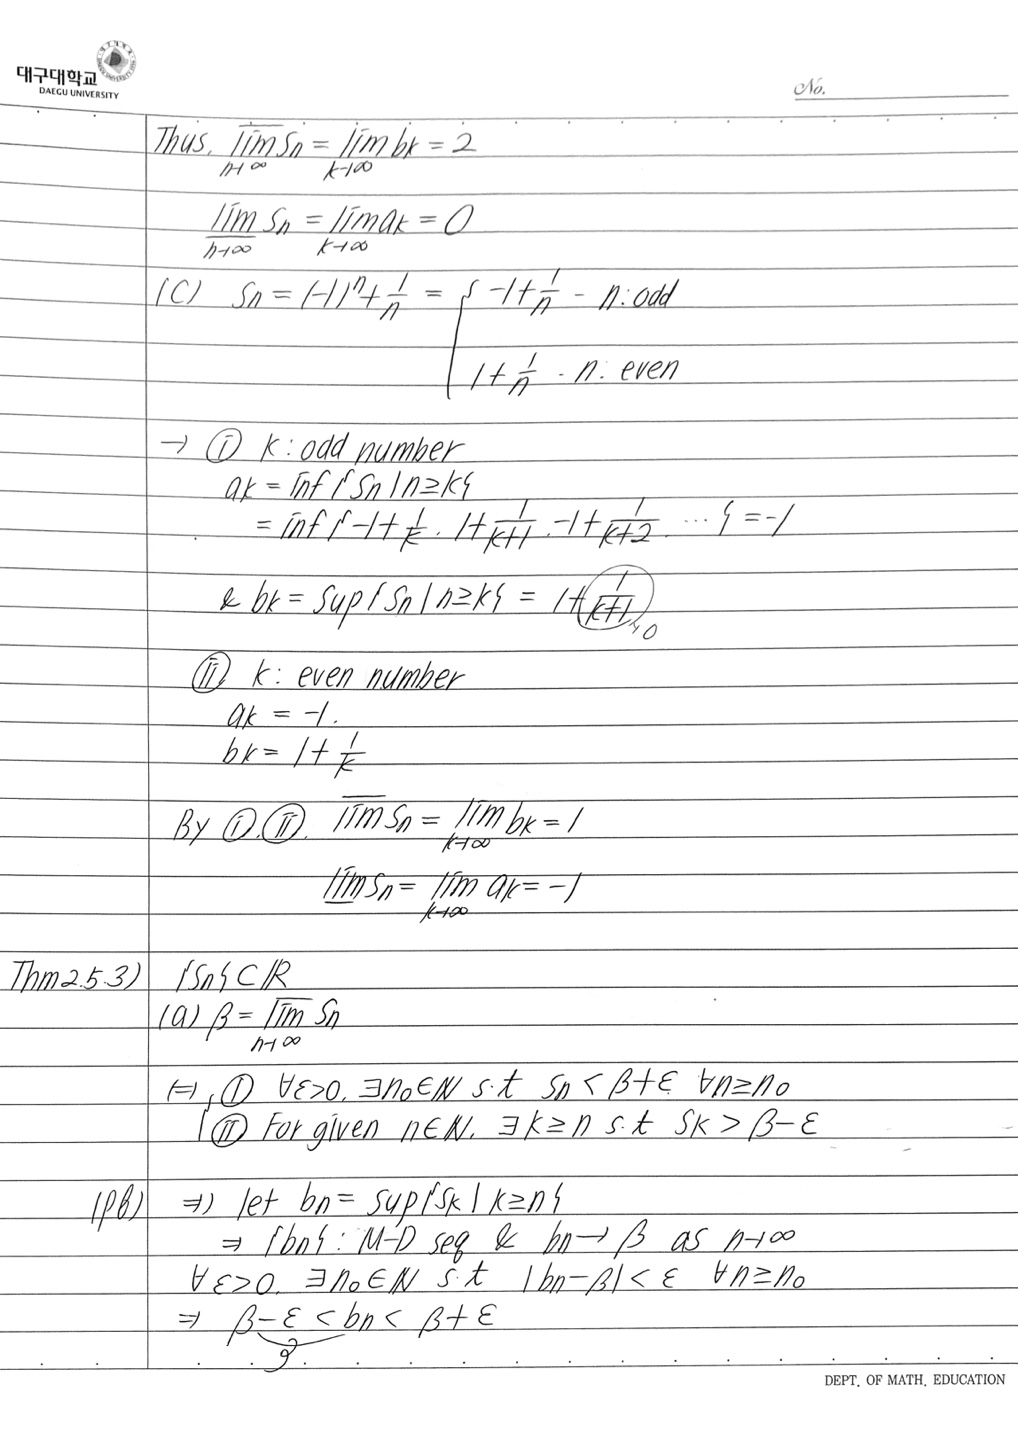 대구대학교
DAEGU UNIVERSITY
No.
Thus, \overline{lim}_{n→∞} Sn = lim_{k→∞} bk = 2
\underline{lim}_{n→∞} Sn = lim_{k→∞} ak = 0
(C) Sn = (-1)^n + 1/n = { -1 + 1/n - n: odd
1 + 1/n - n: even
→ ⓘ k: odd number
ak = inf{Sn | n≥k}
= inf{ -1 + 1/k, 1 + 1/(k+1), -1 + 1/(k+2), ... } = -1
& bk = sup{Sn | n≥k} = 1 + 1/(k+1) → 0
ⓘⓘ k: even number
ak = -1.
bk = 1 + 1/k
By ⓘ, ⓘⓘ, \overline{lim} Sn = lim_{k→∞} bk = 1
\underline{lim} Sn = lim_{k→∞} ak = -1
Thm 2.5.3) {Sn} ⊂ ℝ
(a) β = \overline{lim}_{n→∞} Sn
⇔ { ⓘ ∀ε>0, ∃n₀∈ℕ s.t Sn < β+ε ∀n≥n₀
ⓘⓘ For given n∈ℕ, ∃k≥n s.t Sk > β-ε
(pf) ⇒) let bn = sup{Sk | k≥n}
⇒ {bn}: M-D seq & bn → β as n→∞
∀ε>0, ∃n₀∈ℕ s.t |bn-β| < ε ∀n≥n₀
⇒ β-ε < bn < β+ε
DEPT. OF MATH. EDUCATION